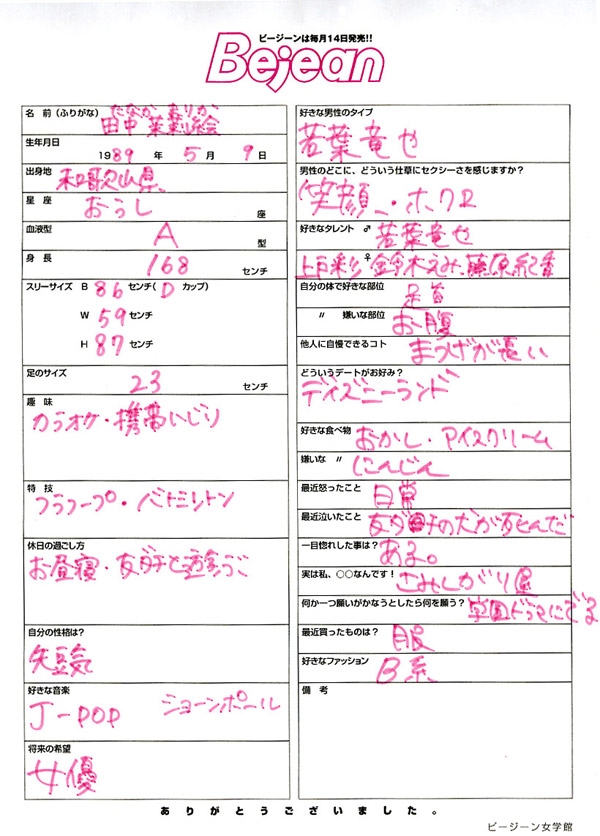 ビージーンは毎月14日発売!!
Bejean
名 前(ふりがな) たなか まりか
田中 茉利絵
生年月日
1989 年 5 月 9 日
出身地 和歌山県
星 座 おうし 座
血液型 A 型
身 長 168 センチ
スリーサイズ B 86 センチ( D カップ)
W 59 センチ
H 87 センチ
足のサイズ 23 センチ
趣 味
カラオケ・携帯いじり
特 技
フラフープ・バトミントン
休日の過ごし方
お昼寝・友ダチと遊ぶ
自分の性格は?
短気
好きな音楽
J-POP ショーンポール
将来の希望
女優
好きな男性のタイプ
若葉竜也
男性のどこに、どういう仕草にセクシーさを感じますか?
笑顔、ホクロ
好きなタレント ♂ 若葉竜也
♀ 上戸彩 鈴木えみ 藤原紀香
自分の体で好きな部位 足首
〃 嫌いな部位 お腹
他人に自慢できるコト まつげが長い
どういうデートがお好み?
ディズニーランド
好きな食べ物 おかし・アイスクリーム
嫌いな 〃 にんじん
最近怒ったこと 日常
最近泣いたこと 友ダチの犬が死んだ
一目惚れした事は? ある。
実は私、○○なんです! さみしがり屋
何か一つ願いがかなうとしたら何を願う? 学園ドラマにでる
最近買ったものは? 服
好きなファッション B系
備 考
ありがとうございました。
ビージーン女学館